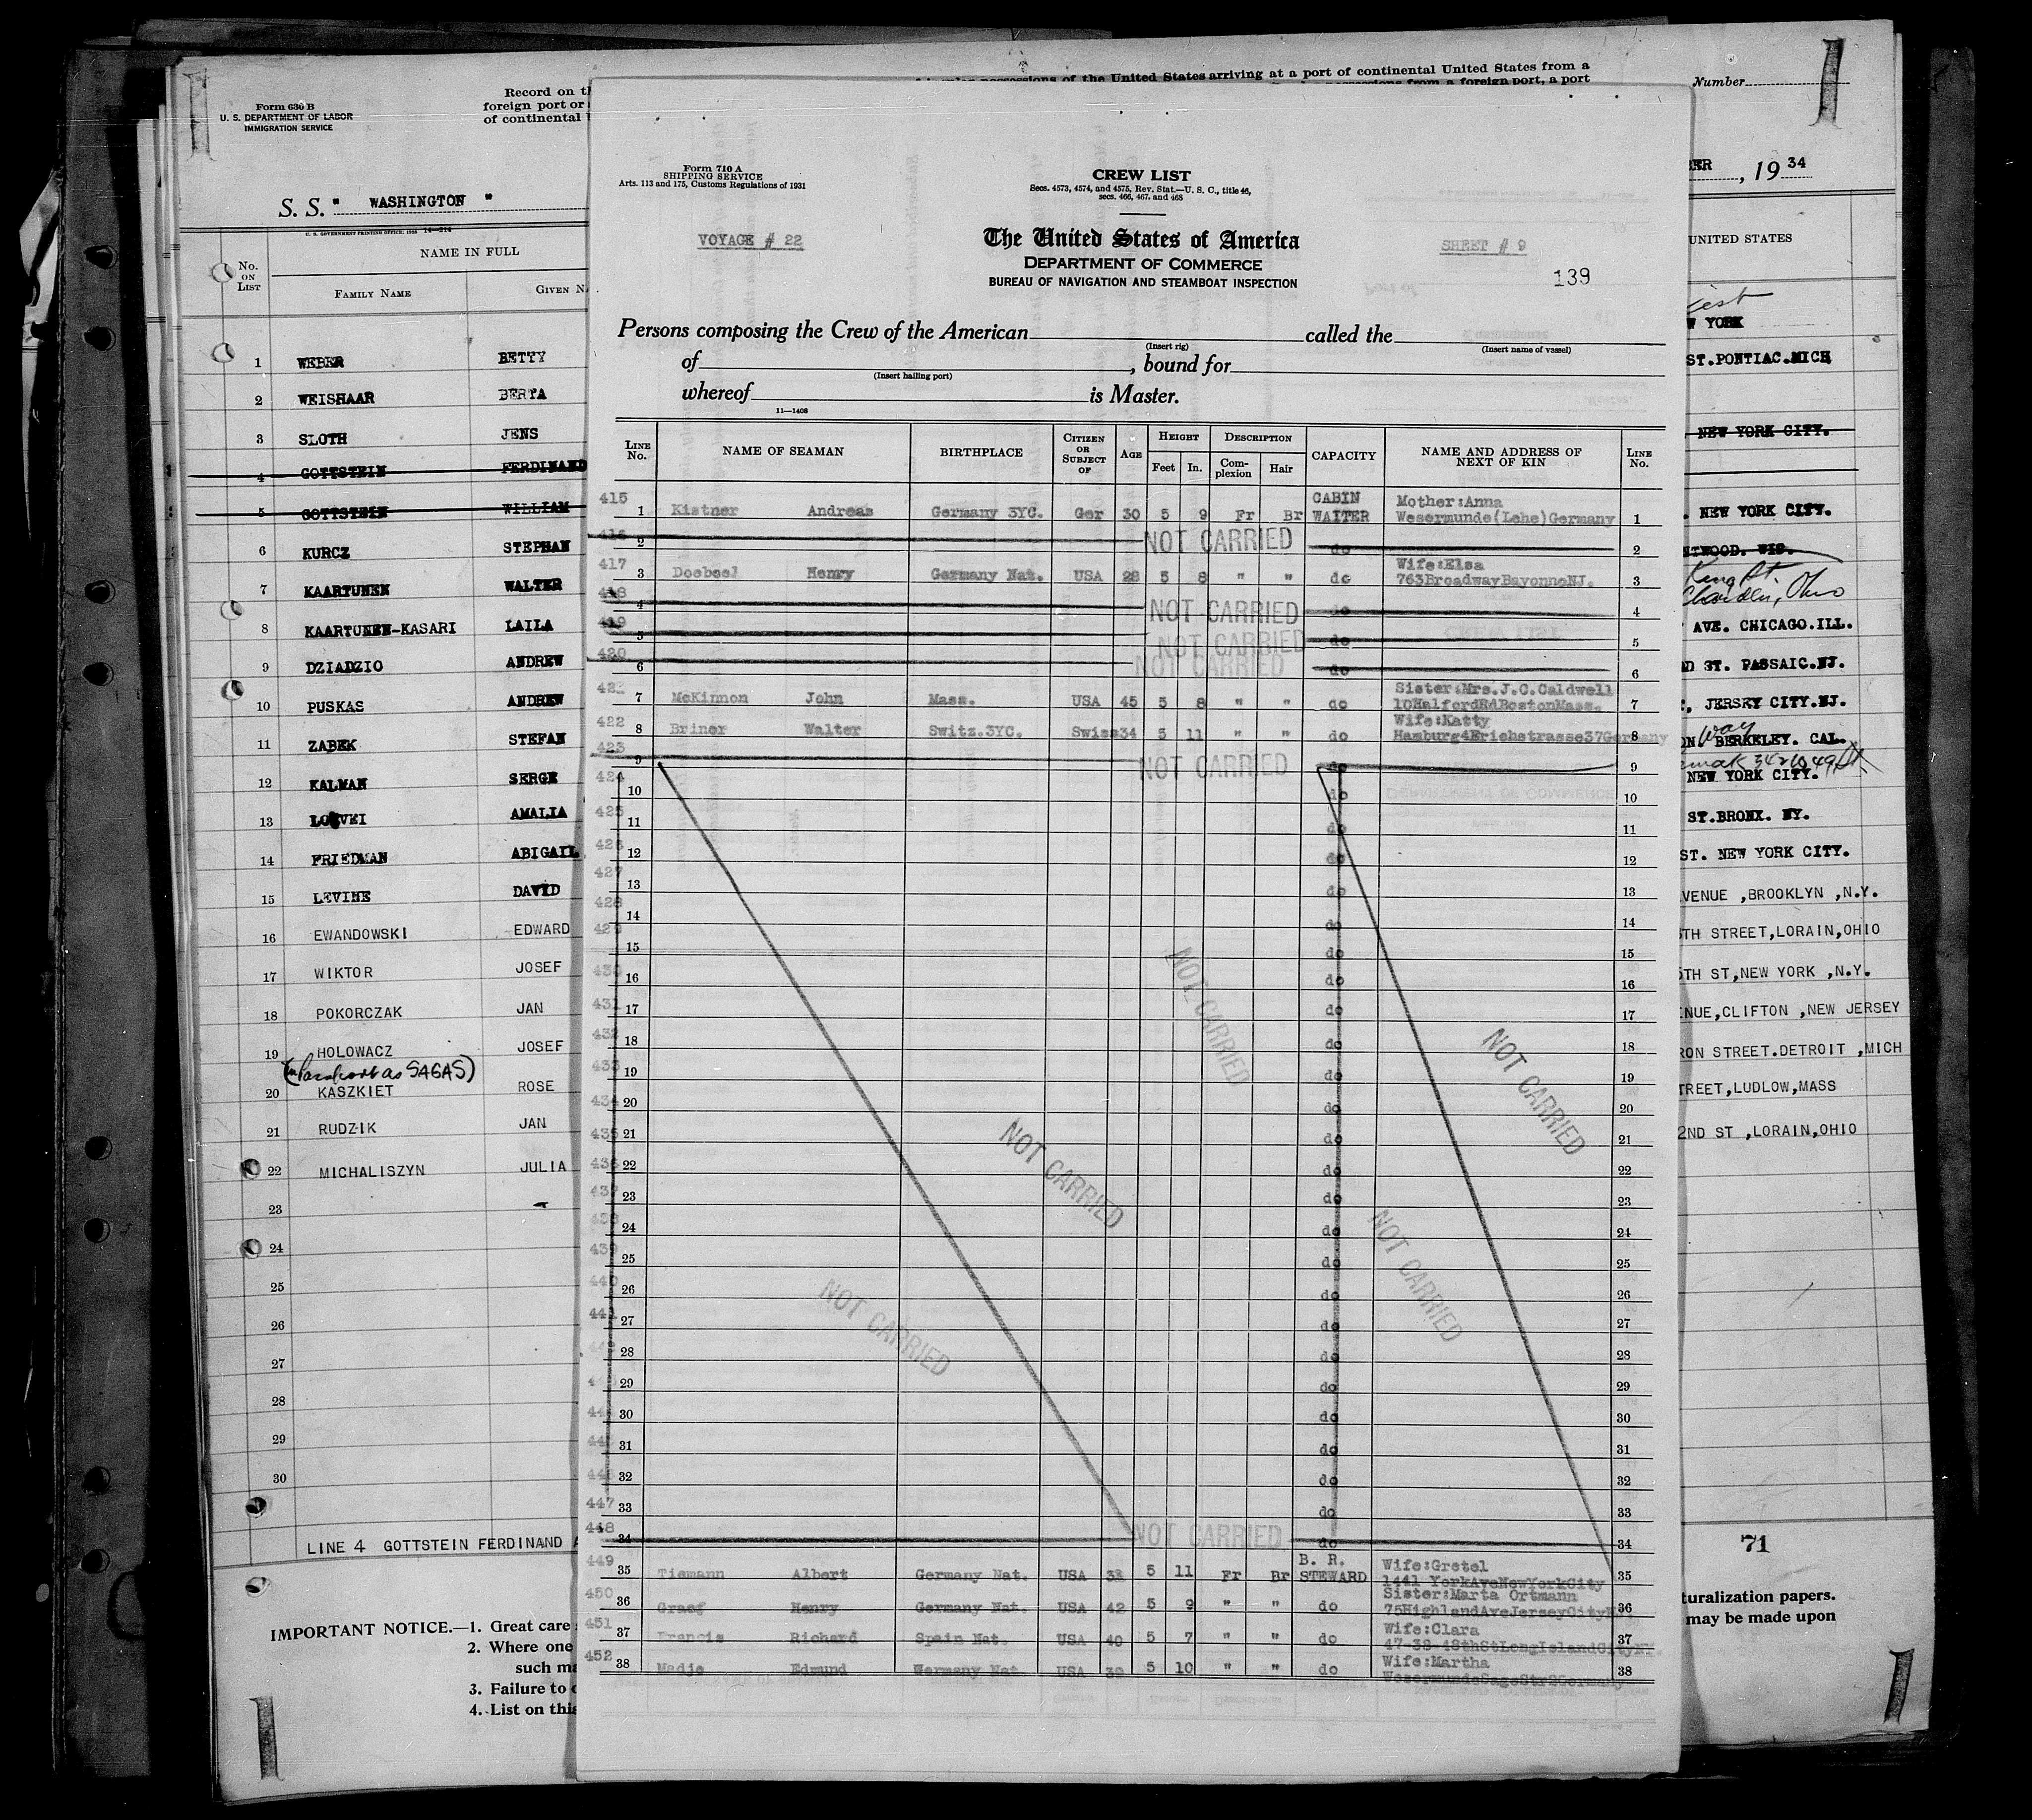 Form 630 B
U. S. DEPARTMENT OF LABOR
IMMIGRATION SERVICE
Record on th
foreign port or
of continental
possessions of the United States arriving at a port of continental United States from a
possessions from a foreign port, a port
Number
BER , 19 34
S. S. " WASHINGTON "
U. S. GOVERNMENT PRINTING OFFICE: 14—214
No. ON LIST
NAME IN FULL
FAMILY NAME GIVEN NA
1 WEBER BETTY
2 WEISHAAR BERTA
3 SLOTH JENS
4 GOTTSTEIN FERDINAND
5 GOTTSTEIN WILLIAM
6 KURCZ STEPHAN
7 KAARTUNEN WALTER
8 KAARTUNEN-KASARI LAILA
9 DZIADZIO ANDREW
10 PUSKAS ANDREW
11 ZABEK STEFAN
12 KALMAN SERGE
13 AMALIA
14 FRIEDMAN ABIGAIL
15 LEVINE DAVID
16 EWANDOWSKI EDWARD
17 WIKTOR JOSEF
18 POKORCZAK JAN
19 HOLOWACZ JOSEF
(In Passport as SAGAS)
20 KASZKIET ROSE
21 RUDZIK JAN
22 MICHALISZYN JULIA
23
24
25
26
27
28
29
30
LINE 4 GOTTSTEIN FERDINAND A
IMPORTANT NOTICE.—1. Great care
2. Where one
such ma
3. Failure to
4. List on this
Form 710 A
SHIPPING SERVICE
Arts. 113 and 175, Customs Regulations of 1931
CREW LIST
Secs. 4573, 4574, and 4575, Rev. Stat.—U. S. C., title 46,
secs. 466, 467, and 468
VOYAGE # 22
The United States of America
SHEET # 9
DEPARTMENT OF COMMERCE
BUREAU OF NAVIGATION AND STEAMBOAT INSPECTION
139
Persons composing the Crew of the American called the
(Insert rig) (Insert name of vessel)
of , bound for
(Insert hailing port)
whereof is Master.
11—1408
LINE No. NAME OF SEAMAN BIRTHPLACE CITIZEN OR SUBJECT OF AGE HEIGHT Feet In. DESCRIPTION Complexion Hair CAPACITY NAME AND ADDRESS OF NEXT OF KIN LINE No.
415 CABIN Mother:Anna
1 Kistner Andreas Germany 3YC. Ger 30 5 9 Fr Br WAITER Wesermunde(Lehe)Germany 1
416 2 NOT CARRIED do 2
417 Wife:Elsa
3 Doebsel Henry Germany Nat. USA 28 5 8 " " do 763BroadwayBayonneNJ. 3
418 4 NOT CARRIED do 4
419 5 NOT CARRIED do 5
420 6 NOT CARRIED do 6
421 Sister:Mrs.J.C.Caldwell
7 McKinnon John Mass. USA 45 5 8 " " do 10HalfordRdBostonMass. 7
422 Wife:Katty
8 Briner Walter Switz.3YC. Swiss 34 5 11 " " do Hamburg4Erichstrasse37Germany 8
423 9 NOT CARRIED do 9
424 10 do 10
425 11 do 11
426 12 do 12
427 13 do 13
428 14 do 14
429 15 do 15
430 16 do 16
431 17 do 17
432 18 do 18
433 19 do 19
434 20 do 20
435 21 do 21
436 22 do 22
437 23 do 23
438 24 do 24
439 25 do 25
440 26 do 26
441 27 do 27
28 do 28
29 do 29
30 do 30
31 do 31
32 do 32
447 33 do 33
NOT CARRIED
NOT CARRIED
NOT CARRIED
NOT CARRIED
NOT CARRIED
448 34 NOT CARRIED do 34
449 B. R. Wife:Gretel
35 Tiemann Albert Germany Nat. USA 5 11 Fr Br STEWARD 1441 YorkAveNewYorkCity 35
450 Sister:Marta Ortmann
36 Graef Henry Germany Nat. USA 42 5 9 " " do 75HighlandAveJerseyCity 36
451 Wife:Clara
37 Francis Richard Spain Nat. USA 40 5 7 " " do 47-38-48thStLongIslandCityNY. 37
452 Wife:Martha
38 Madje Edmund Wermany Nat. USA 5 10 " " do WesermundeSageStr2Germany 38
UNITED STATES
W YORK
ST.PONTIAC.MICH
NEW YORK CITY.
NEW YORK CITY.
NTWOOD. WIS.
King St
Ohio
AVE. CHICAGO.ILL.
D ST. PASSAIC.NJ.
JERSEY CITY.NJ.
Way
ON. BERKELEY. CAL.
NEW YORK CITY.
ST.BRONX. NY.
ST. NEW YORK CITY.
VENUE ,BROOKLYN ,N.Y.
TH STREET,LORAIN,OHIO
5TH ST,NEW YORK ,N.Y.
NUE,CLIFTON ,NEW JERSEY
RON STREET.DETROIT ,MICH
TREET,LUDLOW,MASS
2ND ST ,LORAIN,OHIO
71
turalization papers.
may be made upon